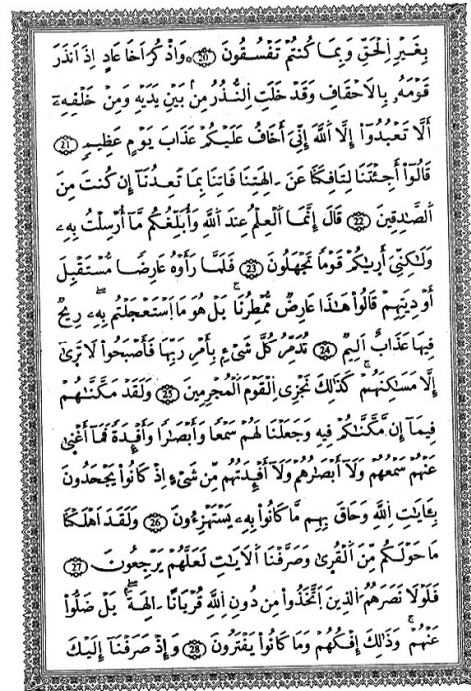 بِغَيْرِ اِلْحَقِّ وَبِمَا كُنتُمْ تَفْسُقُونَ 20 وَاذْكُرَ اَخَا عَادٍ إِذَ اَنذَرَ
قَوْمَهُۥ بِالَاحْقَافِ وَقَدْ خَلَتِ اِلنُّذُرُ مِنۢ بَيْنِ يَدَيْهِ وَمِنْ خَلْفِهِۦٓ
أَلَّا تَعْبُدُوٓاْ إِلَّا اَللَّهَ إِنِّيَ أَخَافُ عَلَيْكُمْ عَذَابَ يَوْمٍ عَظِيمٍ 21
قَالُوٓاْ أَجِئْتَنَا لِتَافِكَنَا عَنَ ـالِهَتِنَا فَاتِنَا بِمَا تَعِدُنَآ إِن كُنتَ مِنَ
اَلصَّٰدِقِينَ 22 قَالَ إِنَّمَا اَلْعِلْمُ عِندَ اَللَّهِ وَأُبَلِّغُكُم مَّآ أُرْسِلْتُ بِهِۦ
وَلَٰكِنِّيَ أَرٜىٰكُمْ قَوْمًا تَجْهَلُونَ 23 فَلَمَّا رَأَوْهُ عَارِضًا مُّسْتَقْبِلَ
أَوْدِيَتِهِمْ قَالُواْ هَٰذَا عَارِضٌ مُّمْطِرُنَا بَلْ هُوَ مَا اَسْتَعْجَلْتُم بِهِۦ رِيحٌ
فِيهَا عَذَابٌ اَلِيمٌ 24 تُدَمِّرُ كُلَّ شَےْءِۢ بِأَمْرِ رَبِّهَا فَأَصْبَحُواْ لَا تَرٜىٰٓ
إِلَّا مَسَٰكِنَهُمْ كَذَٰلِكَ نَجْزِي اِلْقَوْمَ اَلْمُجْرِمِينَ 25 وَلَقَدْ مَكَّنَّٰهُمْ
فِيمَآ إِن مَّكَّنَّٰكُمْ فِيهِ وَجَعَلْنَا لَهُمْ سَمْعًا وَأَبْصَٰرًا وَأَفْـِٕدَةً فَمَآ أَغْنٜىٰ
عَنْهُمْ سَمْعُهُمْ وَلَآ أَبْصَٰرُهُمْ وَلَآ أَفْـِٕدَتُهُم مِّن شَےْءٍ اِذْ كَانُواْ يَجْحَدُونَ
بِـَٔايَٰتِ اِللَّهِ وَحَاقَ بِهِم مَّا كَانُواْ بِهِۦ يَسْتَهْزِءُونَ 26 وَلَقَدَ اَهْلَكْنَا
مَا حَوْلَكُم مِّنَ اَلْقُرٜىٰ وَصَرَّفْنَا اَلَايَٰتِ لَعَلَّهُمْ يَرْجِعُونَ 27
فَلَوْلَا نَصَرَهُمُ اُلذِينَ اَتَّخَذُواْ مِن دُونِ اِللَّهِ قُرْبَانًا ـالِهَةَۢ بَلْ ضَلُّواْ
عَنْهُمْ وَذَٰلِكَ إِفْكُهُمْ وَمَا كَانُواْ يَفْتَرُونَ 28 وَإِذْ صَرَفْنَآ إِلَيْكَ